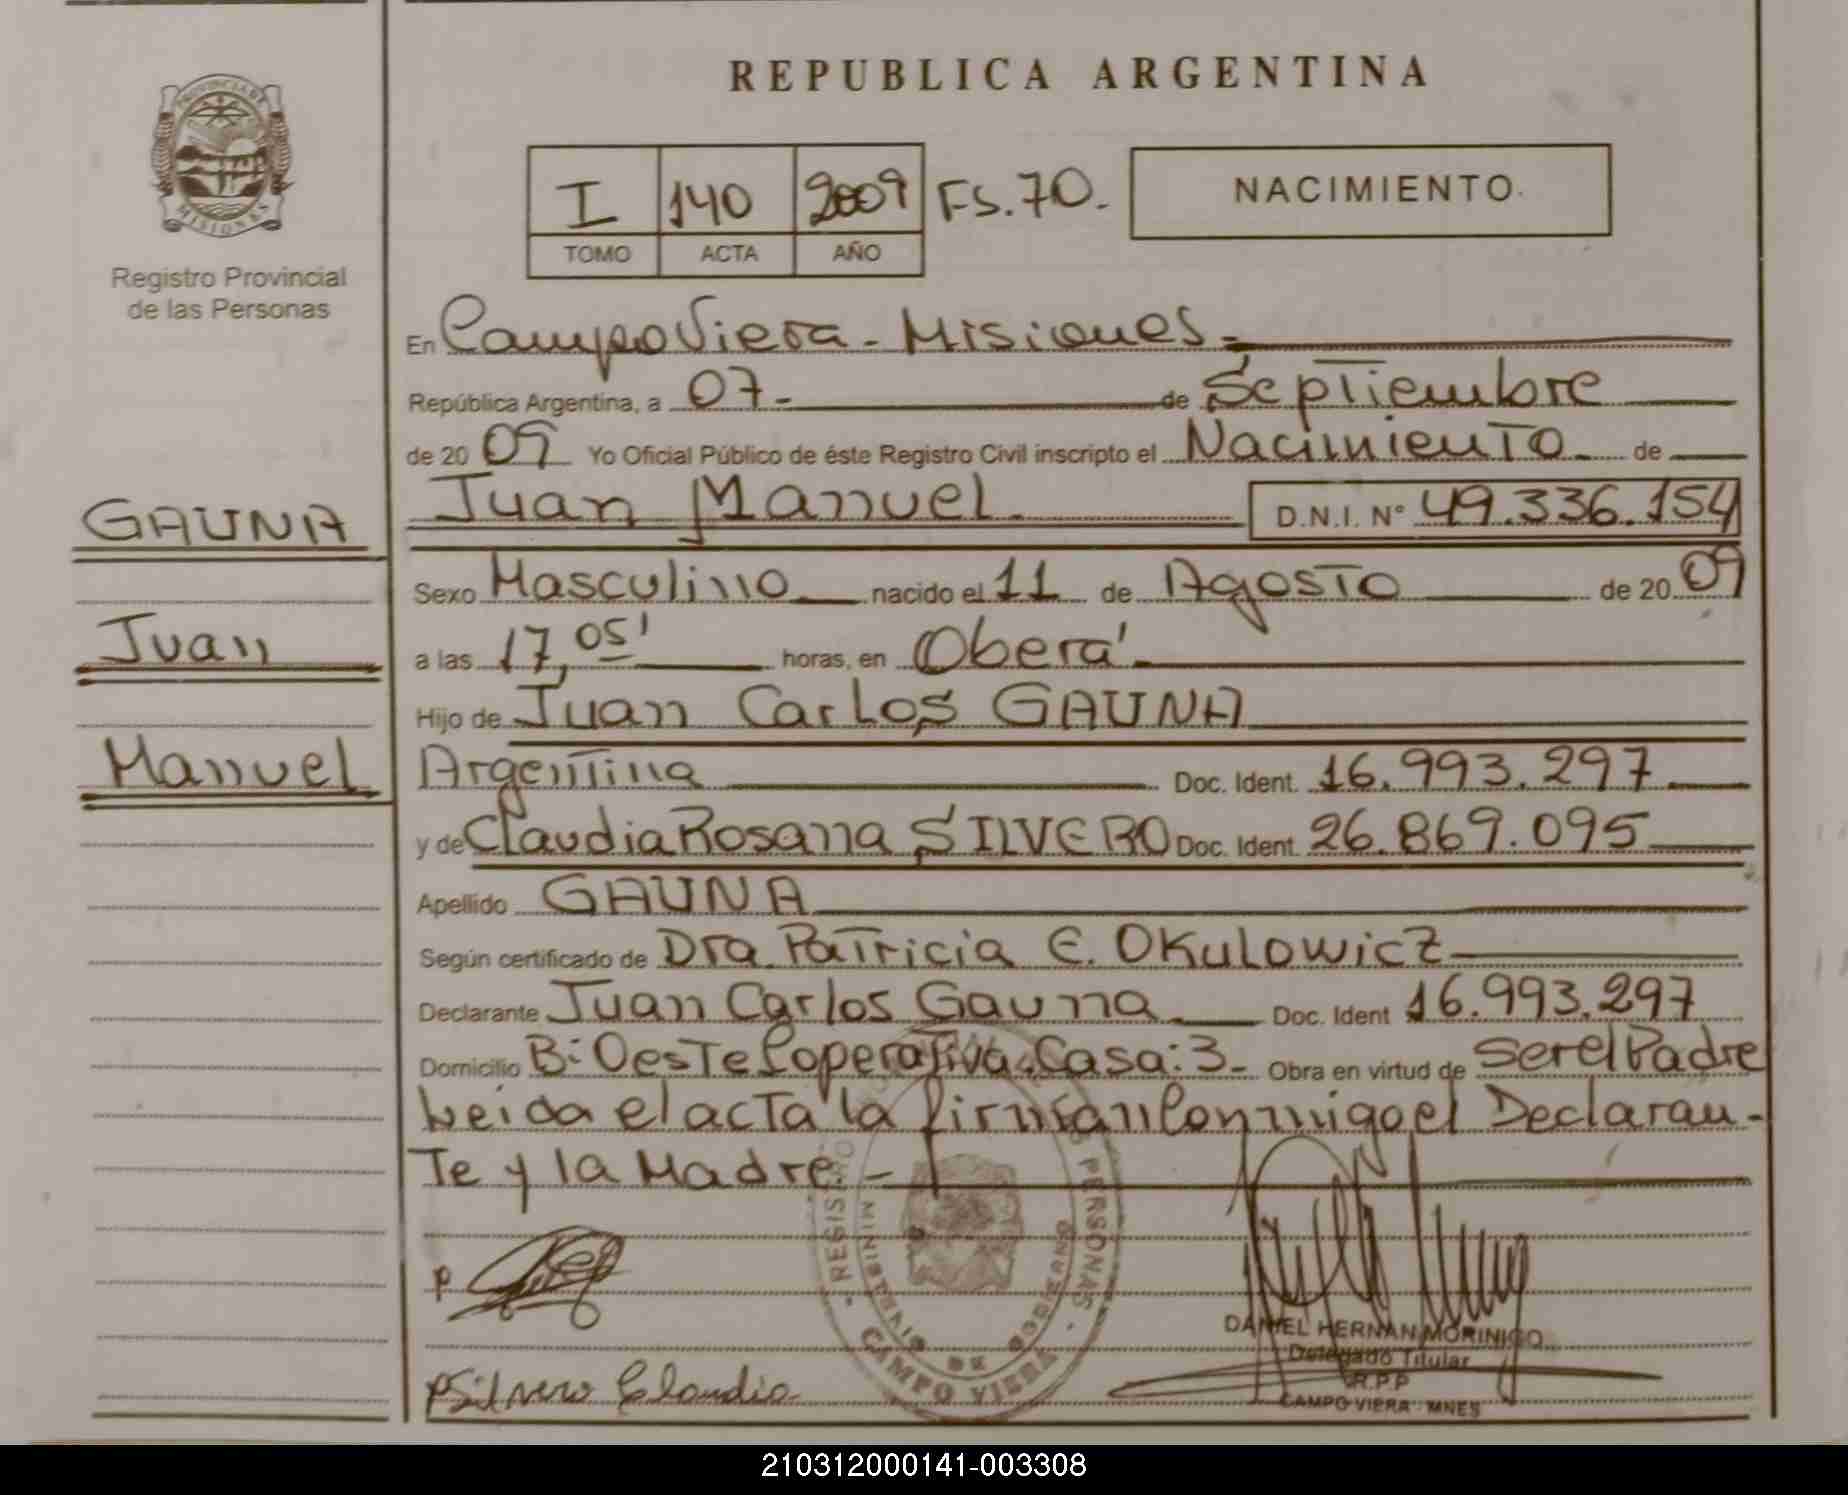 REPUBLICA ARGENTINA
PROVINCIA DE MISIONES
Registro Provincial
de las Personas
I 140 2009 FS.70.-
TOMO ACTA AÑO
NACIMIENTO.
En Campo Viera - Misiones -
República Argentina, a 07.- de Septiembre
de 2009 Yo Oficial Público de éste Registro Civil inscripto el Nacimiento de
GAUNA
Juan
Manuel
Juan Manuel D.N.I. N° 49.336.154
Sexo Masculino nacido el 11 de Agosto de 2009
a las 17,05' horas, en Oberá
Hijo de Juan Carlos GAUNA
Argentina Doc. Ident. 16.993.297
y de Claudia Rosana SILVERO Doc. Ident. 26.869.095
Apellido GAUNA
Según certificado de Dra. Patricia E. Okulowicz
Declarante Juan Carlos Gauna Doc. Ident 16.993.297
Domicilio B: Oeste Coperativa. Casa: 3.- Obra en virtud de ser el Padre
Leida el acta la firman conmigo el Declaran-
Te y la Madre.-
REGISTRO PERSONAS
MINISTERIO DE GOBIERNO
CAMPO VIERA
DANIEL HERNAN MORINIGO
Delegado Titular
R.P.P
CAMPO VIERA - MNES
Silvero Claudia
210312000141-003308